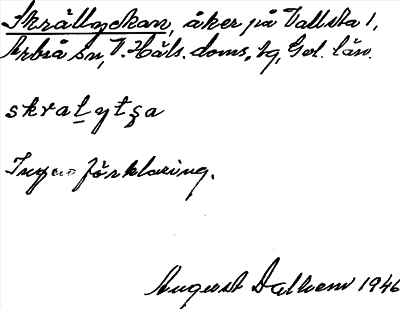 Skrållyckan, åker på Vallsta 1,
Arbrå sn, V. Häls. doms. tg, Gvl. län.
skralytʂa
Ingen förklaring.
August Dalhem 1946